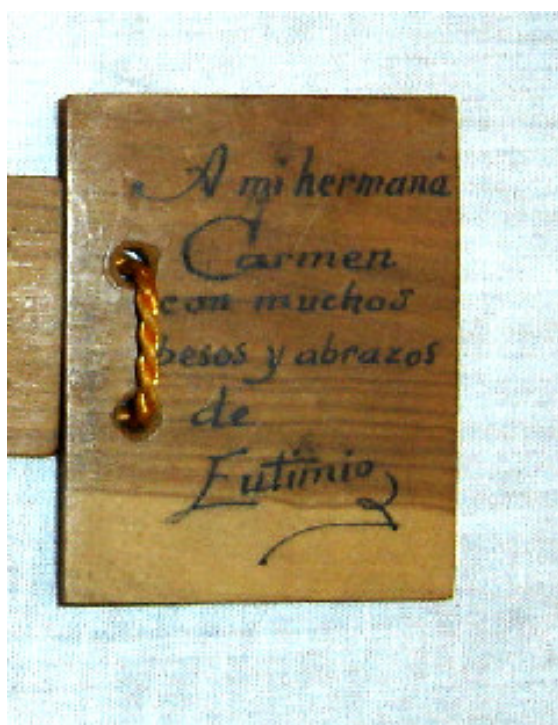 A mi hermana
Carmen
con muchos
besos y abrazos
de
Eutimio